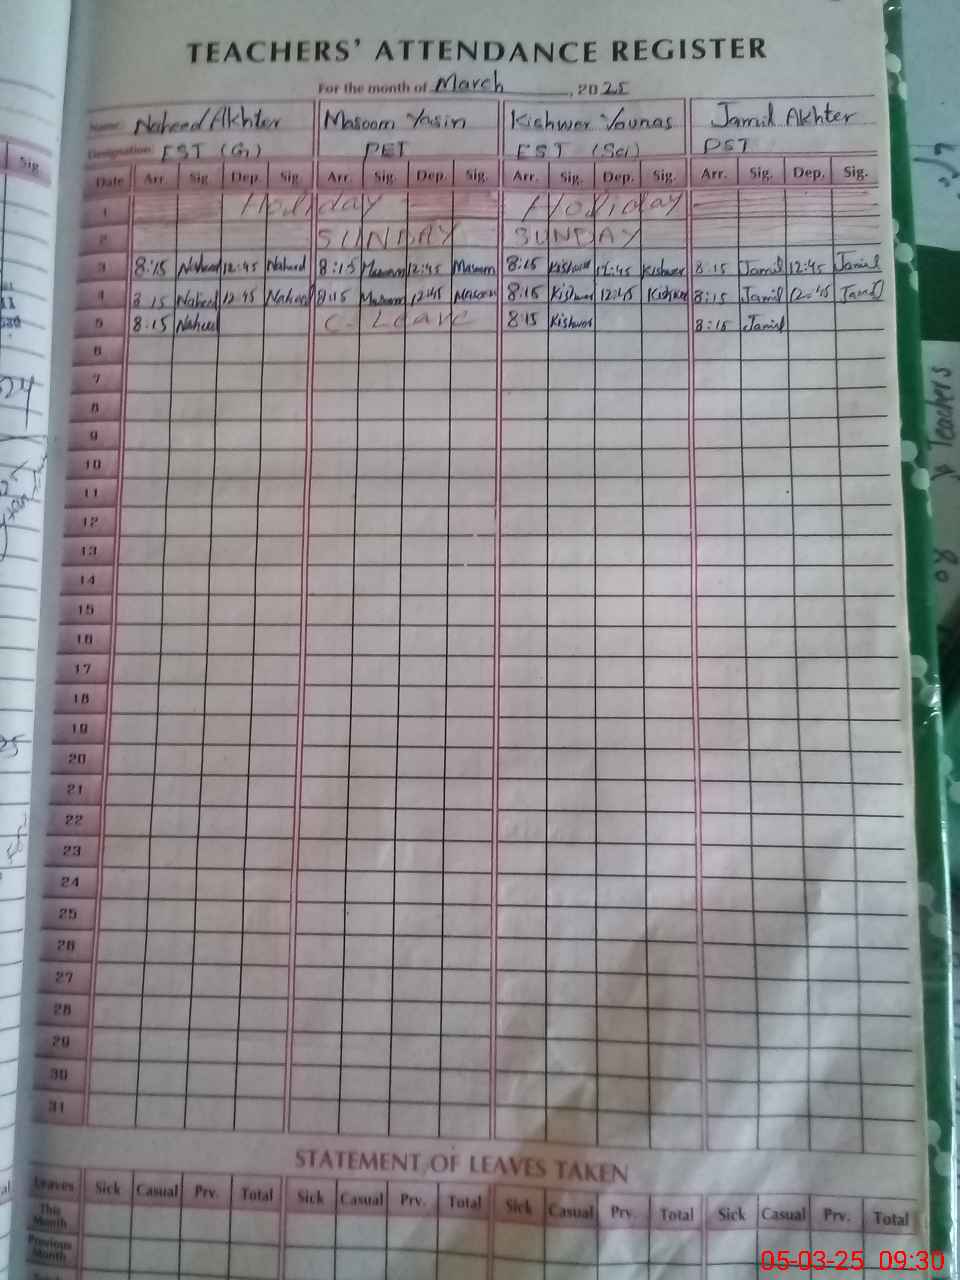 TEACHERS' ATTENDANCE REGISTER
For the month of March, 2025
Name: Naheed Akhter Masoom Yasin Kishwer Younas Jamil Akhter
Designation: EST (G) PET EST (Sci) PST
Date Arr. Sig. Dep. Sig. Arr. Sig. Dep. Sig. Arr. Sig. Dep. Sig. Arr. Sig. Dep. Sig.
1 Holiday Holiday
2 SUNDAY SUNDAY
3 8:15 Naheed 12:45 Naheed 8:15 Masoom 12:45 Masoom 8:15 Kishwer 12:45 Kishwer 8:15 Jamil 12:45 Jamil
4 8:15 Naheed 12:45 Naheed 8:15 Masoom 12:45 Masoom 8:15 Kishwer 12:45 Kishwer 8:15 Jamil 12:45 Jamil
5 8:15 Naheed C. Leave 8:15 Kishwer 8:15 Jamil
6
7
8
9
10
11
12
13
14
15
16
17
18
19
20
21
22
23
24
25
26
27
28
29
30
31
STATEMENT OF LEAVES TAKEN
Leaves Sick Casual Prv. Total Sick Casual Prv. Total Sick Casual Prv. Total Sick Casual Prv. Total
This Month
Previous Month
Sig.
Teachers
05-03-25 09:30